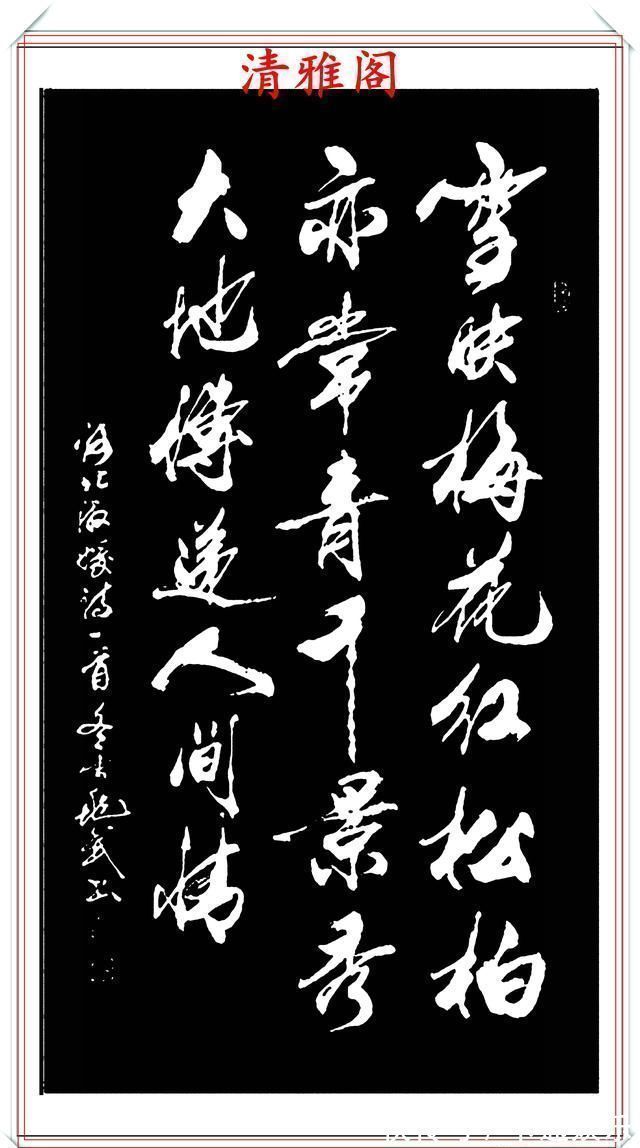 清雅阁
雪映梅花红松柏
亦常青千景秀
大地传递人间情
诗一首